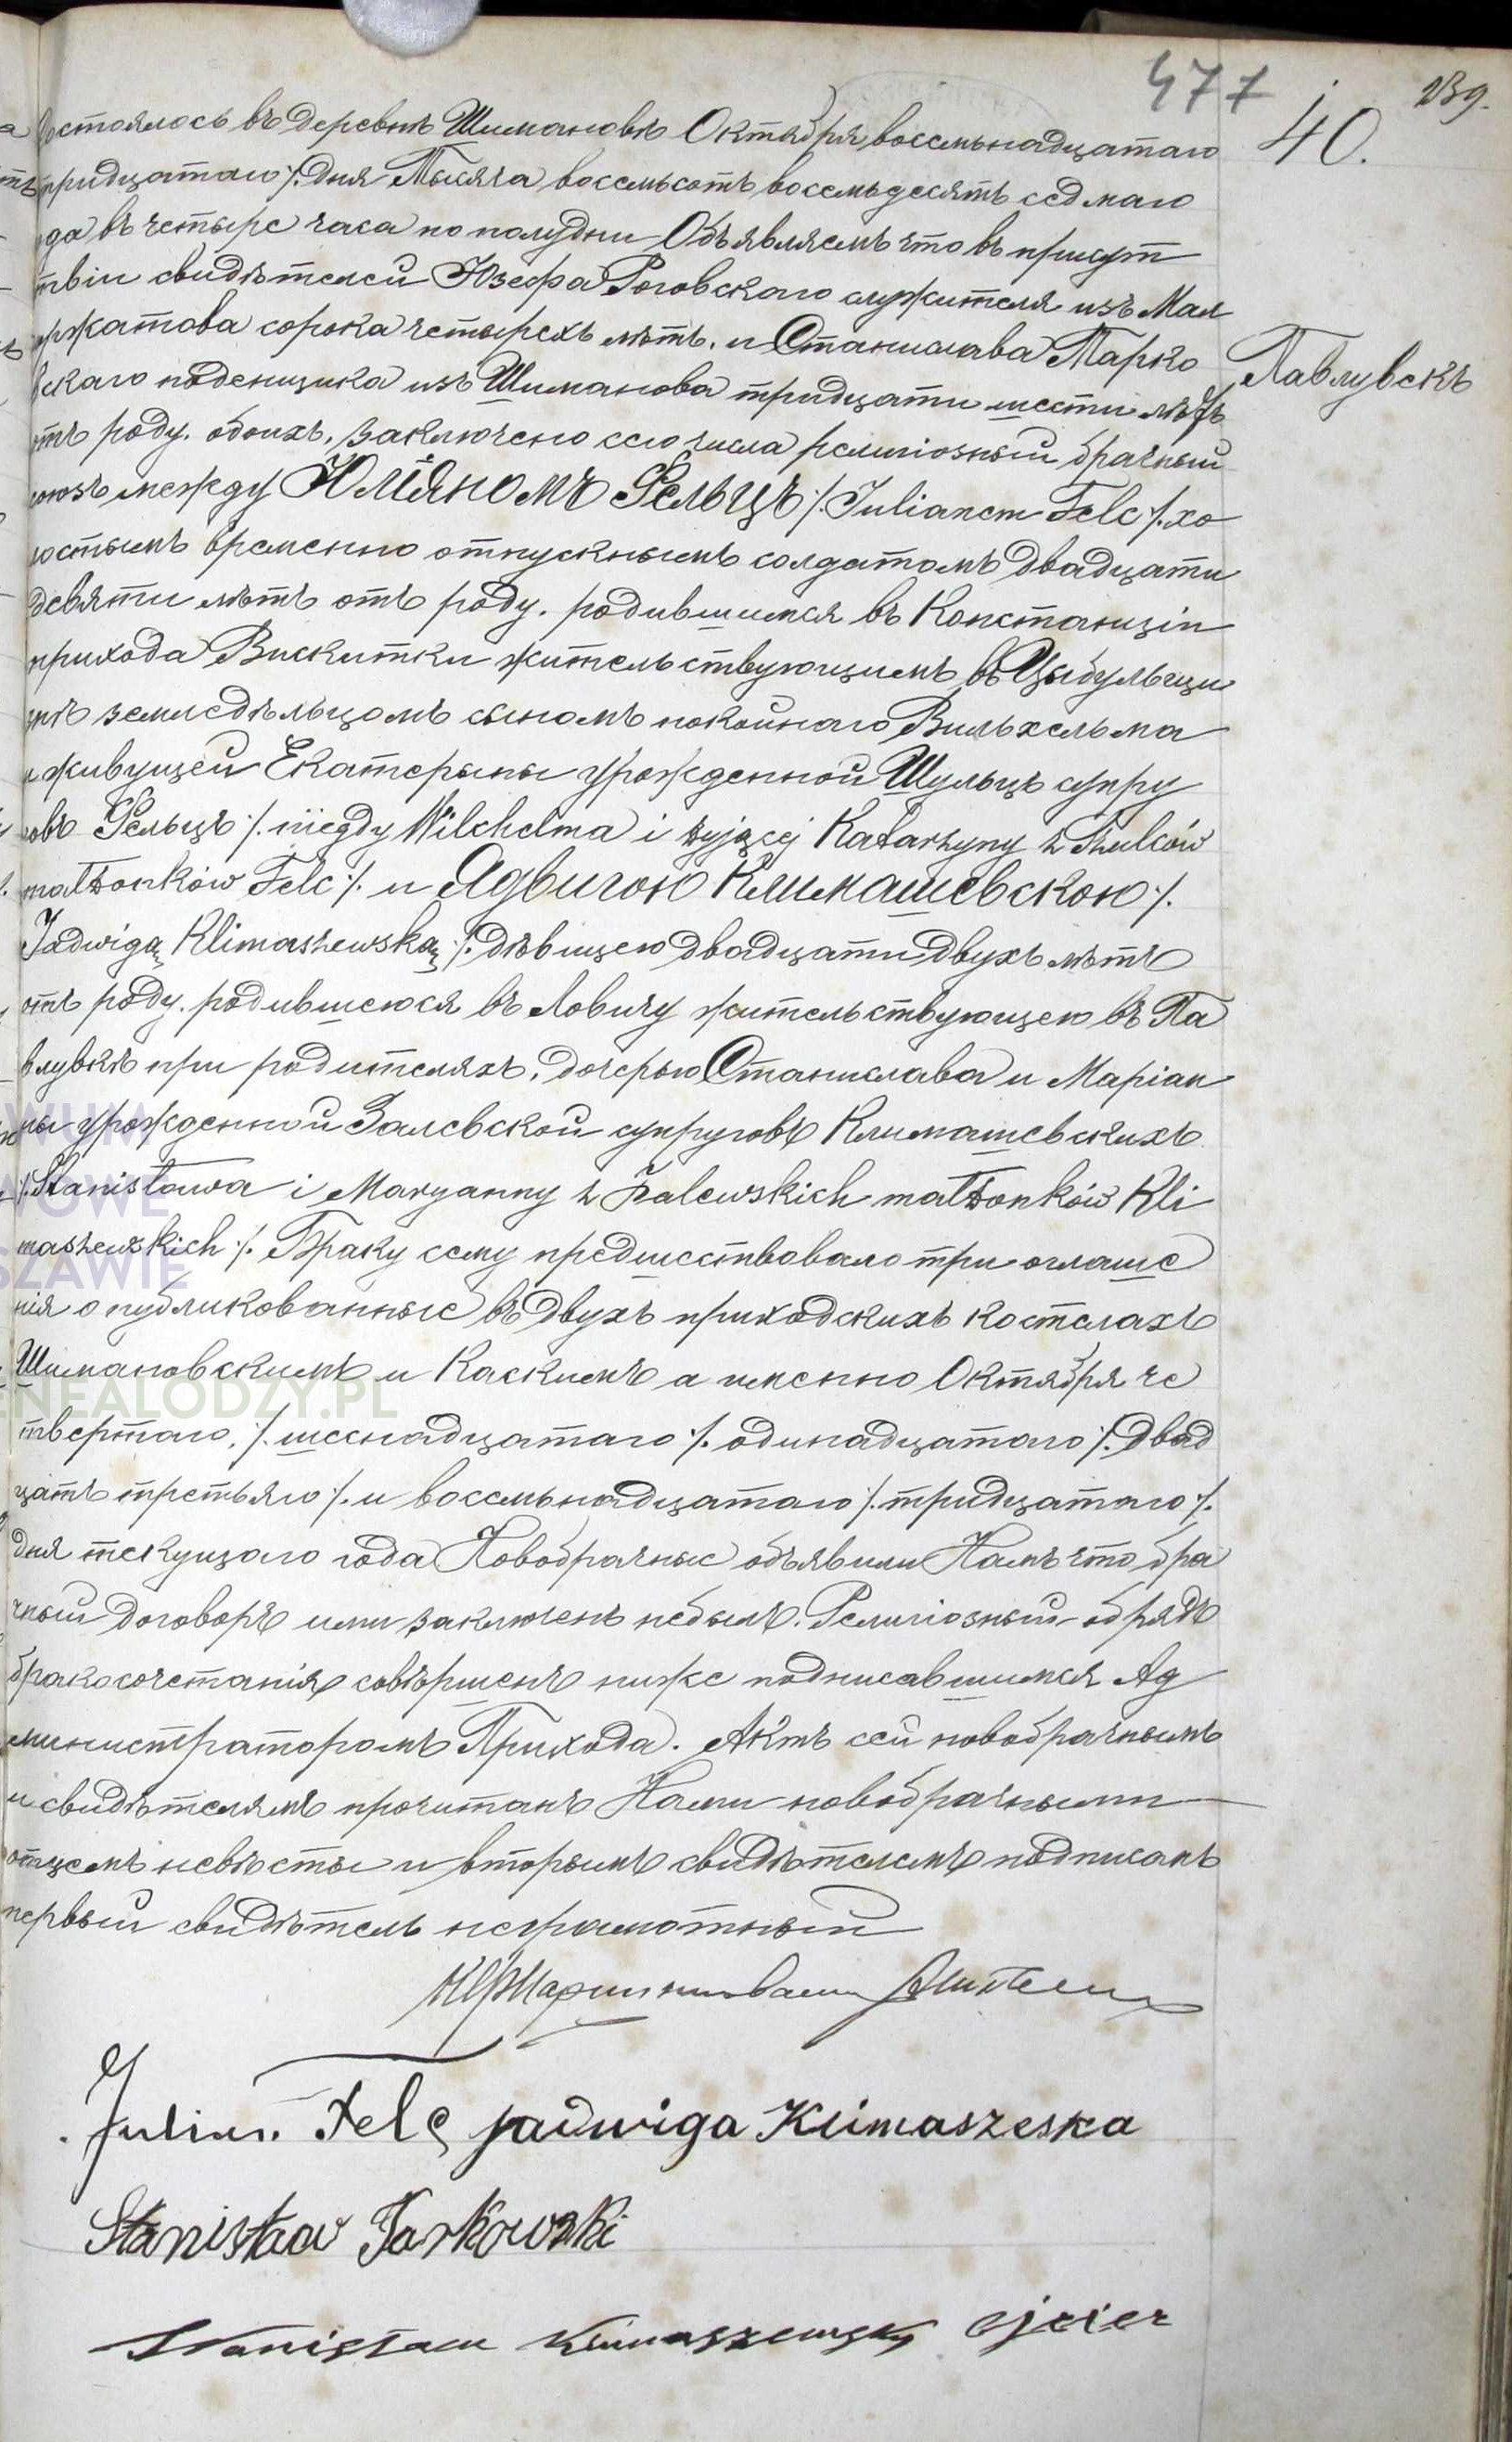 477
239.
40.
Павлувекъ
состоялось въ деревнѣ Шимановѣ Октября восемьнадцатаго
тридцатаго ./. дня Тысяча восемьсотъ восемьдесятъ седмаго
года въ четыре часа по полудни Объявляемъ что въ присут
ствіи свидѣтелей Юзефа Роговскаго служителя изъ
сорока четырехъ лѣтъ, и Станислава Тарко
вскаго поденщика изъ Шиманова тридцати шести лѣтъ
отъ роду. обоихъ, заключено сего числа религіозный брачный
союзъ между Юліяномъ Фельцъ ./. Julianem Felc ./. хо
лостымъ временно отпускнымъ солдатомъ двадцати
девяти лѣтъ отъ роду. родившимся въ Констанціи
прихода Вискитки жительствующимъ въ Цыбульци
знѣ земледѣльцомъ сыномъ покойнаго Вильхельма
и живущей Екатерыны урожденной Шульцъ супру
говъ Фельцъ ./. niegdy Wilchelma i żyjącej Katarzyny z Szulców
małżonków Felc ./. и Ядвигою Климашевскою ./.
Jadwigą Klimaszewską ./. дѣвицею двадцати двухъ лѣтъ
отъ роду. родившеюся въ Ловичу жительствующею въ Па
влувкѣ при родителяхъ, дочерью Станислава и Маріан
ны урожденной Залевской супруговъ Климашевскихъ
./. Stanisława i Maryanny z Zalewskich małżonków Kli
maszewskich ./. Браку сему предшествовало три оглаше
нія опубликованные въ двухъ приходскихъ костелахъ
Шимановскимъ и Каскимъ а именно Октября че
твертаго, ./. шеснадцатаго ./. одинадцатаго ./. двад
цать третьяго ./. и восемьнадцатаго ./. тридцатаго ./.
дня текущаго года Новобрачные объявили Намъ что бра
чный договоръ ими заключенъ небылъ. Религіозный обрядъ
бракосочетанія совѣршенъ ниже подписавшимся Ад
министраторомъ Прихода. Актъ сей новобрачнымъ
и свидѣтелямъ прочитанъ Нами новобрачными
отцемъ невѣсты и вторымъ свидѣтелемъ подписанъ
первый свидѣтель неграмотный
Julian Felc Jadwiga Klimaszeska
Stanisław Tarkowski
Stanisław Klimaszewsky ojciec